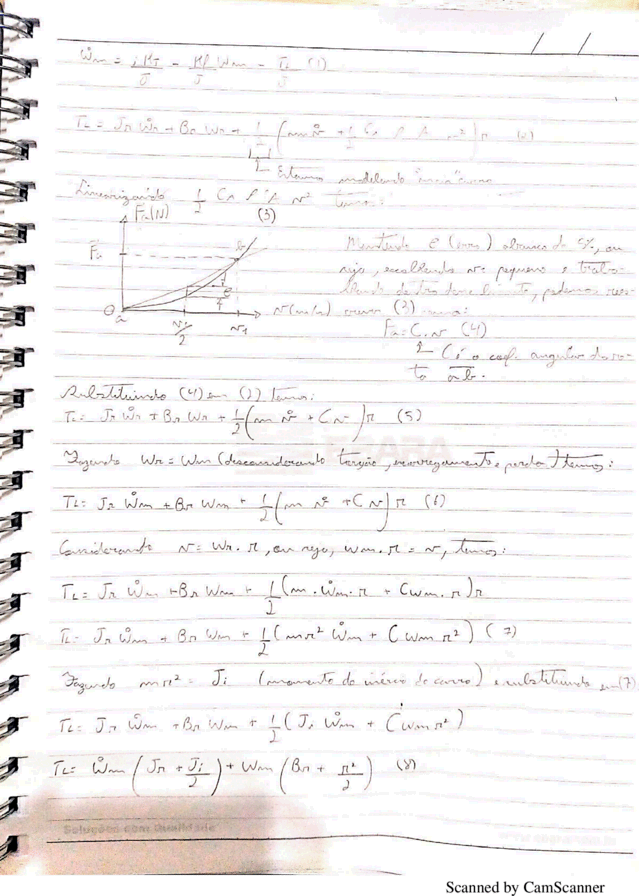 / /
ẇm = iKT/J - Kf/J Wm - TL/J (1)
TL = Jr ẇr + Br Wr + 1/2 (m v̇ + 1/2 Ca ρ A v²) r (2)
Estamos modelando "meio" carro
Linearizando 1/2 Ca ρ A v² temos:
(3)
Fa(N)
Mantendo e (erro) abaixo de 5%, ou
F1 b
seja, escolhendo v1 pequeno e traba-
lhando dentro desse limite, podemos rees-
e
0 a v1/2 v1 v(m/s)
crever (3) como:
Fa = C.v (4)
C é o coef. angular da re-
ta ab.
Substituindo (4) em (2) temos:
TL = Jr ẇr + Br Wr + 1/2 (m v̇ + C v) r (5)
Fazendo Wr = Wm (desconsiderando torção, escorregamento e perdas) temos:
TL = Jr ẇm + Br Wm + 1/2 (m v̇ + C v) r (6)
Considerando v = Wr. r, ou seja, wm. r = v, temos:
TL = Jr ẇm + Br Wm + 1/2 (m . ẇm. r + C wm. r) r
TL = Jr ẇm + Br Wm + 1/2 (m r² ẇm + C wm r²) (7)
Fazendo m r² = Ji (momento de inércia do carro) e substituindo em (7)
TL = Jr ẇm + Br Wm + 1/2 (Ji ẇm + C wm r²)
TL = ẇm (Jr + Ji/2) + Wm (Br + r²/2) (8)
Soluções com Qualidade
Scanned by CamScanner